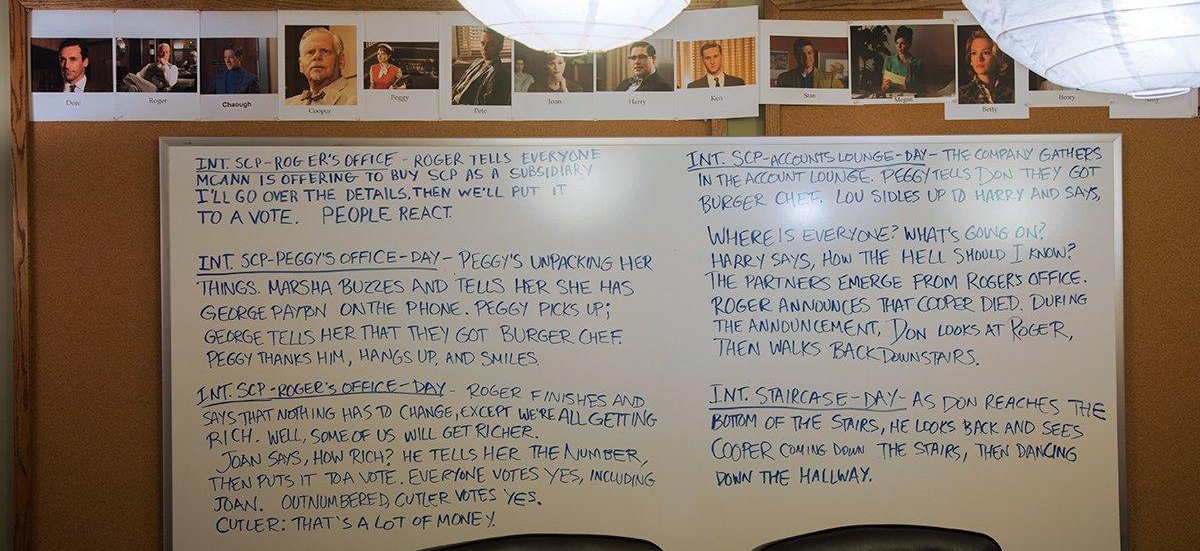 Don
Roger
Chaough
Cooper
Peggy
Pete
Joan
Harry
Ken
Stan
Megan
Betty
Henry
INT. SCP-ROGER'S OFFICE - ROGER TELLS EVERYONE
MCANN IS OFFERING TO BUY SCP AS A SUBSIDIARY
I'LL GO OVER THE DETAILS, THEN WE'LL PUT IT
TO A VOTE. PEOPLE REACT.
INT. SCP-PEGGY'S OFFICE-DAY- PEGGY'S UNPACKING HER
THINGS. MARSHA BUZZES AND TELLS HER SHE HAS
GEORGE PAYTON ON THE PHONE. PEGGY PICKS UP;
GEORGE TELLS HER THAT THEY GOT BURGER CHEF.
PEGGY THANKS HIM, HANGS UP, AND SMILES.
INT. SCP-ROGER'S OFFICE-DAY- ROGER FINISHES AND
SAYS THAT NOTHING HAS TO CHANGE, EXCEPT WE'RE ALL GETTING
RICH. WELL, SOME OF US WILL GET RICHER.
JOAN SAYS, HOW RICH? HE TELLS HER THE NUMBER,
THEN PUTS IT TO A VOTE. EVERYONE VOTES YES, INCLUDING
JOAN. OUTNUMBERED, CUTLER VOTES YES.
CUTLER: THAT'S A LOT OF MONEY.
INT. SCP-ACCOUNTS LOUNGE-DAY- THE COMPANY GATHERS
IN THE ACCOUNT LOUNGE. PEGGY TELLS DON THEY GOT
BURGER CHEF. LOU SIDLES UP TO HARRY AND SAYS,
WHERE IS EVERYONE? WHAT'S GOING ON?
HARRY SAYS, HOW THE HELL SHOULD I KNOW?
THE PARTNERS EMERGE FROM ROGER'S OFFICE.
ROGER ANNOUNCES THAT COOPER DIED. DURING
THE ANNOUNCEMENT, DON LOOKS AT ROGER,
THEN WALKS BACK DOWNSTAIRS.
INT. STAIRCASE-DAY- AS DON REACHES THE
BOTTOM OF THE STAIRS, HE LOOKS BACK AND SEES
COOPER COMING DOWN THE STAIRS, THEN DANCING
DOWN THE HALLWAY.